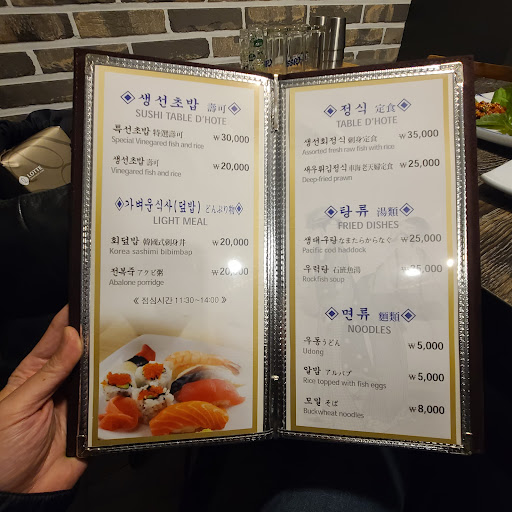 생선초밥 壽可
SUSHI TABLE D'HOTE
특선초밥 特選壽可 ₩30,000
Special Vinegared fish and rice
생선초밥 壽可 ₩20,000
Vinegared fish and rice
가벼운식사(덮밥) どんぶり物
LIGHT MEAL
회덮밥 韓國式刺身丼 ₩20,000
Korea sashimi bibimbap
전복죽 アワビ粥 ₩20,000
Abalone porridge
《 점심시간 11:30~14:00 》
정식 定食
TABLE D'HOTE
생선회정식 刺身定食 ₩35,000
Assorted fresh raw fish with rice
새우튀김정식 車海老天婦羅定食 ₩25,000
Deep-fried prawn
탕류 湯類
FRIED DISHES
생대구탕 なまたらからなべ ₩25,000
Pacific cod haddock
우럭탕 ₩25,000
Rockfish soup
면류 麵類
NOODLES
우동 うどん ₩5,000
Udong
알밥 アルバブ ₩5,000
Rice topped with fish eggs
모밀 そば ₩8,000
Buckwheat noodles
LOTTE